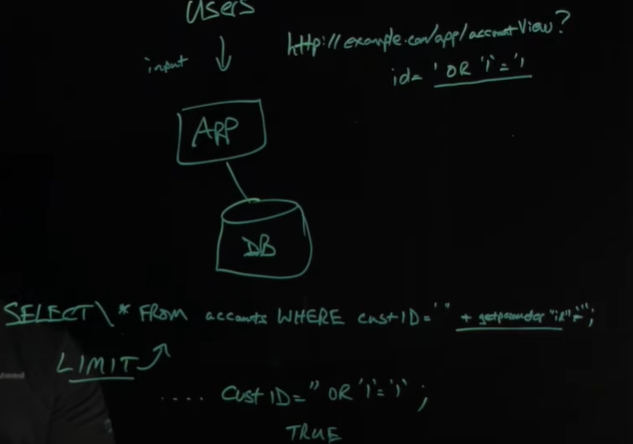 Users
http://example.com/app/accountView?
input
id= ' OR '1'='1
APP
DB
SELECT * FROM accounts WHERE custID='" + getparameter "id" +"';
LIMIT
.... custID='' OR '1'='1';
TRUE